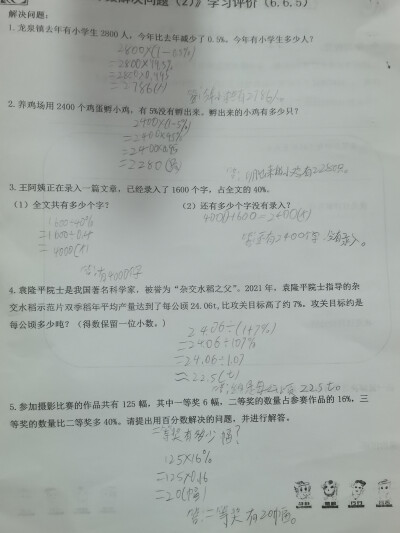 解决问题（2）》学习评价（6.6.5）
解决问题：
1. 龙泉镇去年有小学生 2800 人，今年比去年减少了 0.5%，今年有小学生多少人？
2800×(1-0.5%)
=2800×99.5%
=2786(人)
2. 养鸡场用 2400 个鸡蛋孵小鸡，有 5%没有孵出来。孵出来的小鸡有多少只？
=2400×95%
=2400×0.95
=2280(只)
3. 王阿姨正在录入一篇文章，已经录入了 1600 个字，占全文的 40%。
（1）全文共有多少个字？
（2）还有多少个字没有录入？
1600÷40%
=1600÷0.4
=4000(个)
答:有4000个字
4. 袁隆平院士是我国著名科学家，被誉为“杂交水稻之父”。2021 年，袁隆平院士指导的杂
交水稻示范片双季稻年平均产量达到了每公顷 24.06t，比攻关目标高了约 7%。攻关目标约是
每公顷多少吨？（得数保留一位小数。）
24.06÷(1+7%)
=24.06÷107%
=24.06÷1.07
≈22.5(t)
5. 参加摄影比赛的作品共有 125 幅，其中一等奖 6 幅，二等奖的数量占参赛作品的 16%，三
等奖的数量比二等奖多 40%。请提出用百分数解决的问题，并进行解答。
二等奖有多少幅?
125×16%
=125×0.16
=20(幅)
答:二等奖有20幅。